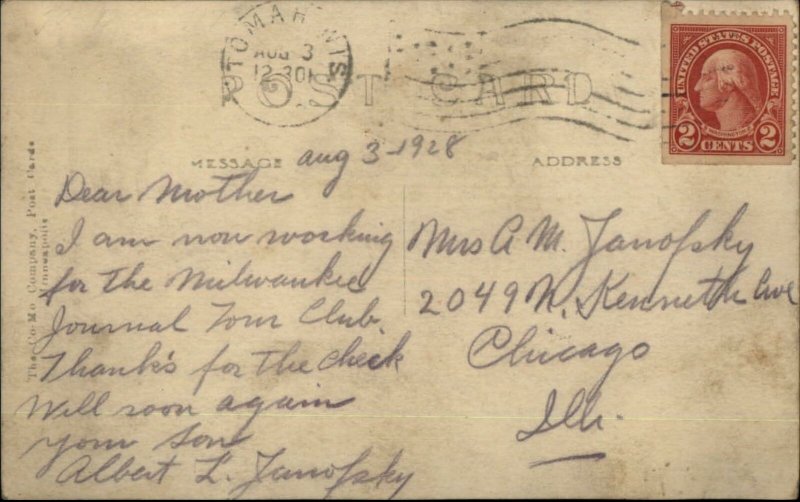 TOMAH, WIS
AUG 3
12 30
POST CARD
UNITED STATES POSTAGE
WASHINGTON
2 CENTS 2
MESSAGE
ADDRESS
Aug 3-1928
Dear Mother
I am now working
for the Milwaukee
Journal Tour Club.
Thank's for the check
Will soon again
your Son
Albert L. Janofsky
Mrs A M. Janofsky
2049 N. Kenneth Ave
Chicago
Ill.
The Co-Mo Company, Post Cards
Minneapolis